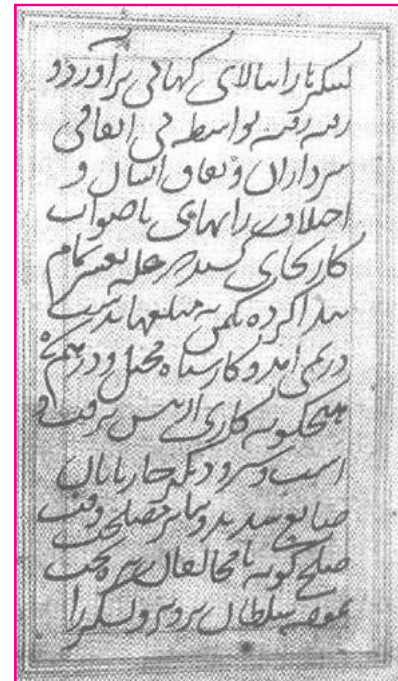 لشکر را ببالای کهاتی برآورد و
رفته رفته بواسطه بی اتفاقی
سرداران و نفاق ایشان و
اختلاف رایهای ناصواب
کار بجای کشید که غله بعسر تمام
پیدا کرده بدست
در نمی آمد و کار سپاه مختل و درهم شد
هیچگونه کاری از پیش نرفت و
اسب و شتر و دیگر چارپایان
ضایع شدند و بنابر مصلحت وقت
صلح گونه با مخالفان
سلطان پرویز و لشکر را